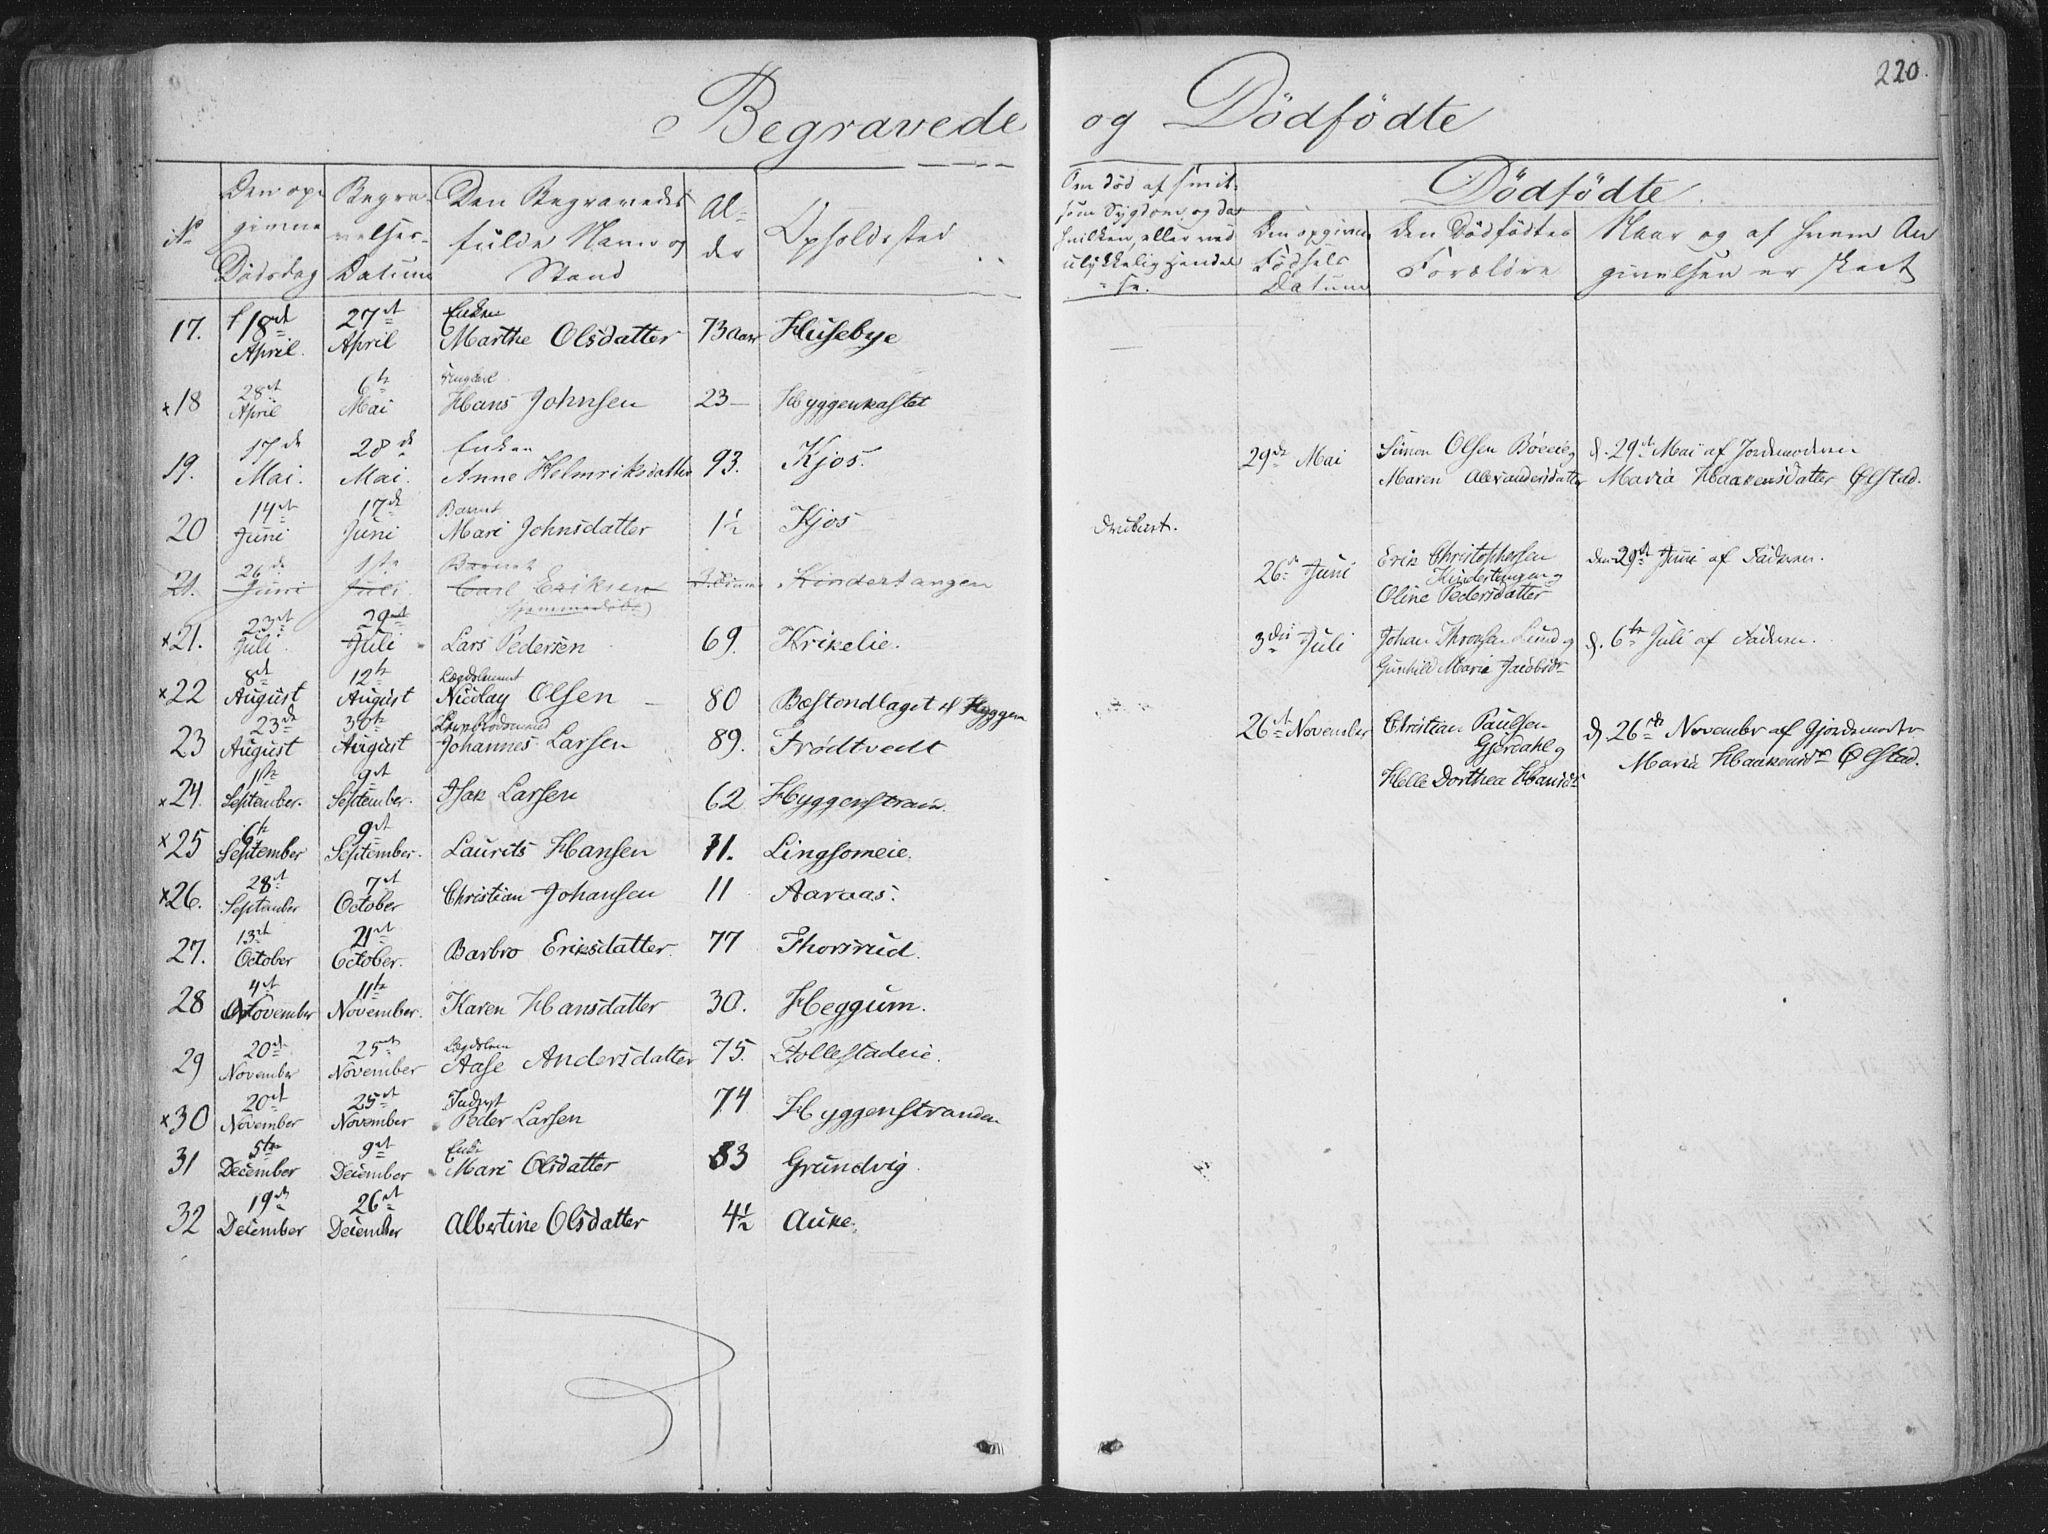 220.
Begravede og Dödfödte
No
Den opgivne Dödsdag
Begravelses-Datum
Den Begravedes fulde Navn og Stand
Alder
Opholdssted
Om død af smitsom Sygdom, og da hvilken, eller ved ulykkelig Hændelse.
Dödfödte
Den opgivne Födsels Datum
Den Dödfödtes Forældre
Naar og af hvem Angivelsen er skeet
17. 18de April. 27de April Enken Marthe Olsdatter 73 Aar Husebye
x18 28de April 6te Mai Ungkarl Hans Johnsen 23 — Hyggenkastet
19. 17de Mai. 28de Mai. Enken Anne Helmriksdatter 93. Kjos.
20 14de Juni 17de Juni Barnet Mari Johnsdatter 1½ Kjos
21. 26de Juni 1ste Juli Barnet Carl Eriksen (hjemmedöbt) Kindertangen
x21. 23de Juli 29de Juli Lars Pedersen 69. Krikelie.
x22 8de August 12te August Lægdslemmet Nicolay Olsen 80 Bæstondlaget
23 23de August 30te August Johannes Larsen 89. Frödtvedt
x24. 1ste September. 9de September. Isak Larsen 62 Hyggenstran.
x25 6te September 9de September. Laurits Hansen 71. Lingsomeie.
x26. 28de September 7de October Christian Johansen 11 Aaraas.
27. 13de October 21de October. Barbro Eriksdatter. 77 Thorsrud.
28 4de November 11te November. Karen Hansdatter 30. Heggum.
29 20de November 25de November Lægdslem Aase Andersdatter 75. Follestadeie.
x30 20de November 25de November Inderst Peder Larsen 74 Hyggenstranden
31 5te December 9de December Enke Mari Olsdatter 83 Grundvig.
32 19de December 26de December Albertine Olsdatter 4½ Auke.
29de Mai Simon Olsen Böeeie og Maren Alexandersdatter d. 29de Mai af Jordemoderen Maria Haakensdatter Ølstad.
26de Juni Erik Christophersen Kindertangen og Oline Pedersdatter den 29de Juni af Faderen.
3die Juli Johan Thronsen Lund og Gunhild Marie Jacobsdr d. 6te Juli af Faderen.
26de November Christian Paulsen Gjerdahl og Helle Dorthea Hansdr d. 26de Novembr af Gjordemoder Maria Haakensdr Ølstad.